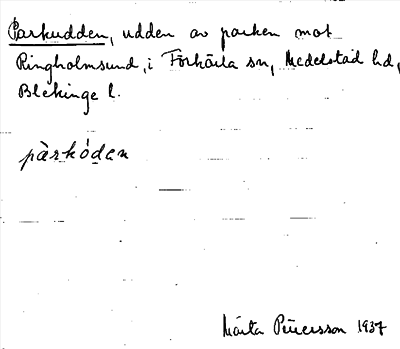 Parkudden, udden av parken mot
Ringholmsund, i Förkärla sn, Medelstad hd,
Blekinge l.
pàrkȯ́dan
Märta Petersson 1937